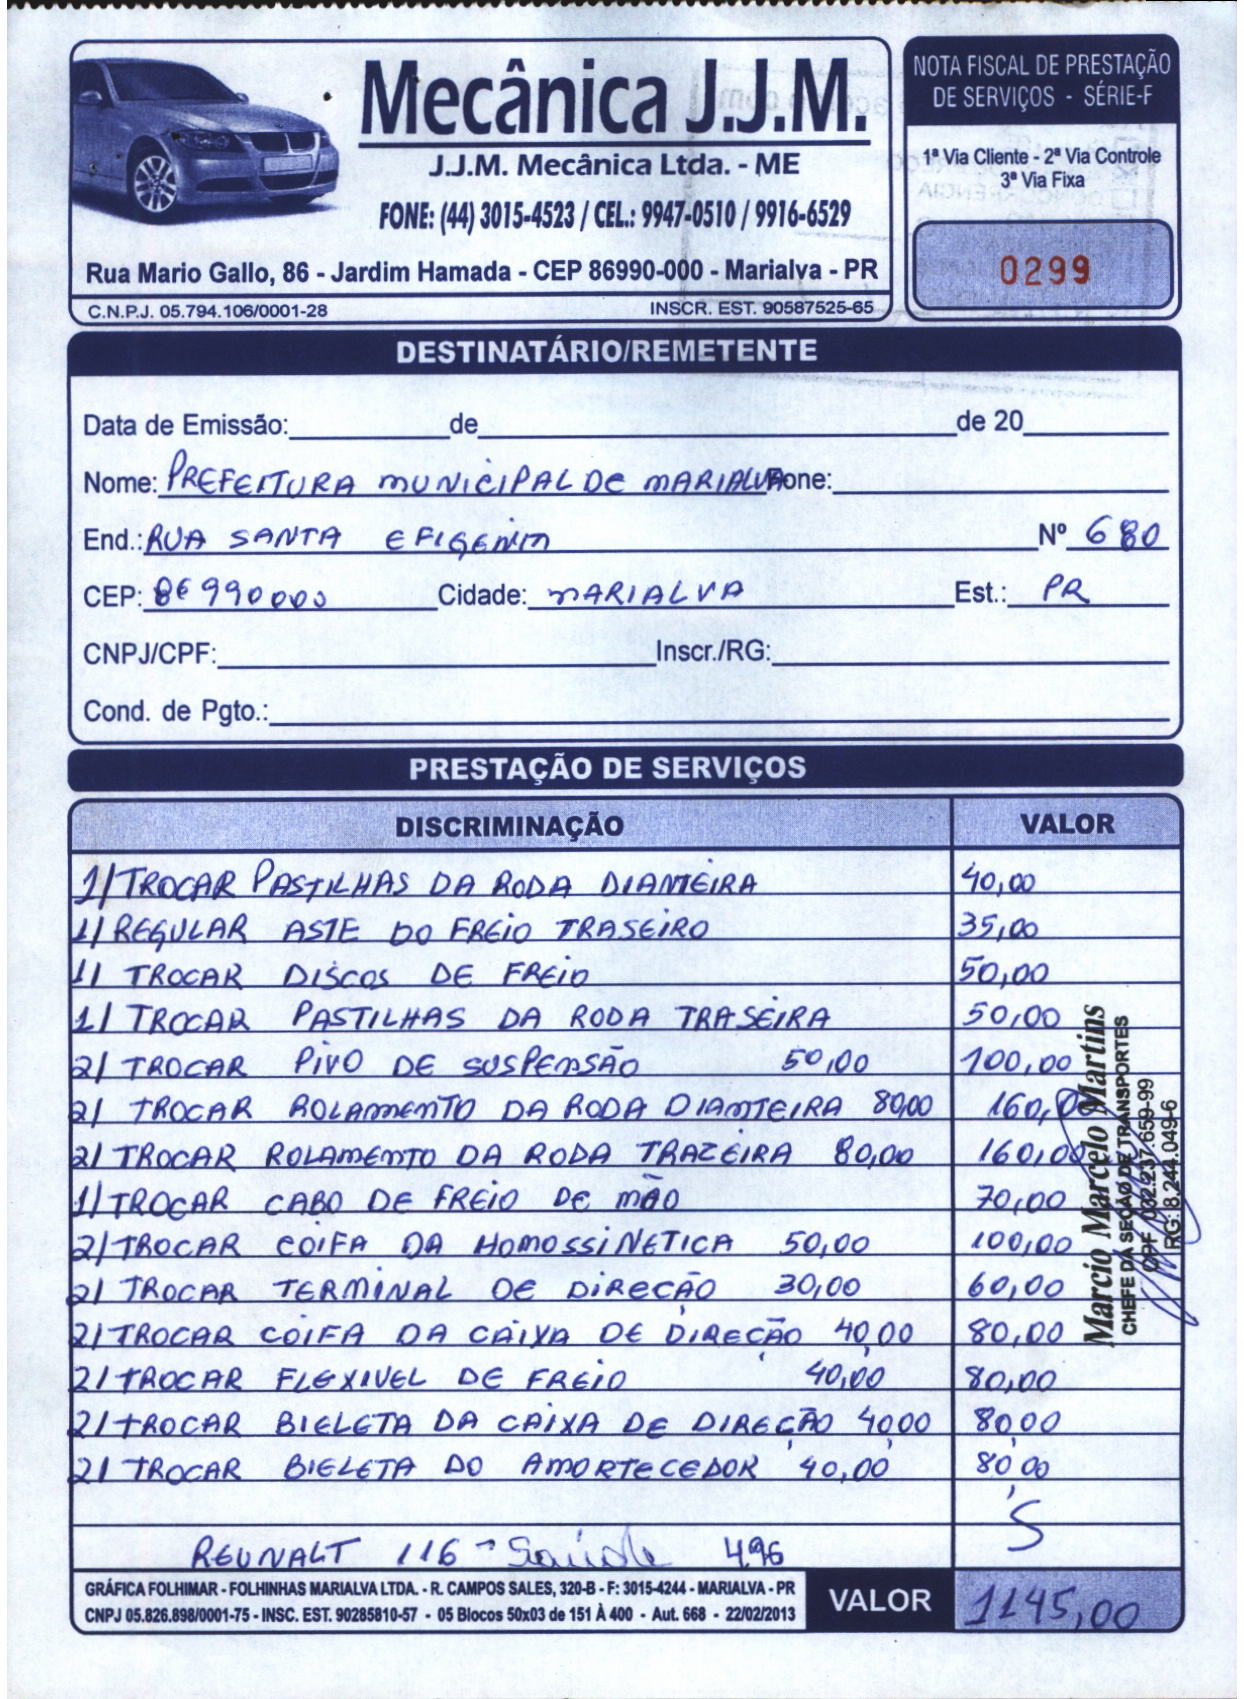 Mecânica J.J.M.
J.J.M. Mecânica Ltda. - ME
FONE: (44) 3015-4523 / CEL.: 9947-0510 / 9916-6529
Rua Mario Gallo, 86 - Jardim Hamada - CEP 86990-000 - Marialva - PR
C.N.P.J. 05.794.106/0001-28 INSCR. EST. 90587525-65
NOTA FISCAL DE PRESTAÇÃO
DE SERVIÇOS - SÉRIE-F
1ª Via Cliente - 2ª Via Controle
3ª Via Fixa
0299
DESTINATÁRIO/REMETENTE
Data de Emissão: de de 20
Nome: PREFEITURA MUNICIPAL DE MARIALVA Fone:
End.: RUA SANTA EFIGENIA Nº 680
CEP: 86990000 Cidade: MARIALVA Est.: PR
CNPJ/CPF: Inscr./RG:
Cond. de Pgto.:
PRESTAÇÃO DE SERVIÇOS
DISCRIMINAÇÃO VALOR
1/ TROCAR PASTILHAS DA RODA DIANTEIRA 40,00
1/ REGULAR ASTE DO FREIO TRASEIRO 35,00
1/ TROCAR DISCOS DE FREIO 50,00
1/ TROCAR PASTILHAS DA RODA TRASEIRA 50,00
2/ TROCAR PIVO DE SUSPENSÃO 50,00 100,00
2/ TROCAR ROLAMENTO DA RODA DIANTEIRA 80,00 160,00
2/ TROCAR ROLAMENTO DA RODA TRAZEIRA 80,00 160,00
1/ TROCAR CABO DE FREIO DE MÃO 70,00
2/ TROCAR COIFA DA HOMOSSINETICA 50,00 100,00
2/ TROCAR TERMINAL DE DIREÇÃO 30,00 60,00
2/ TROCAR COIFA DA CAIXA DE DIREÇÃO 40,00 80,00
2/ TROCAR FLEXIVEL DE FREIO 40,00 80,00
2/ TROCAR BIELETA DA CAIXA DE DIREÇÃO 40,00 80,00
2/ TROCAR BIELETA DO AMORTECEDOR 40,00 80,00
REUNALT 116 - Saúde 496
Marcio Marcelo Martins
CHEFE DA SEÇÃO DE TRANSPORTES
CPF 032.237.659-99
RG: 8.244.049-6
GRÁFICA FOLHIMAR - FOLHINHAS MARIALVA LTDA. - R. CAMPOS SALES, 320-B - F: 3015-4244 - MARIALVA - PR
CNPJ 05.826.898/0001-75 - INSC. EST. 90285810-57 - 05 Blocos 50x03 de 151 À 400 - Aut. 668 - 22/02/2013
VALOR 1145,00